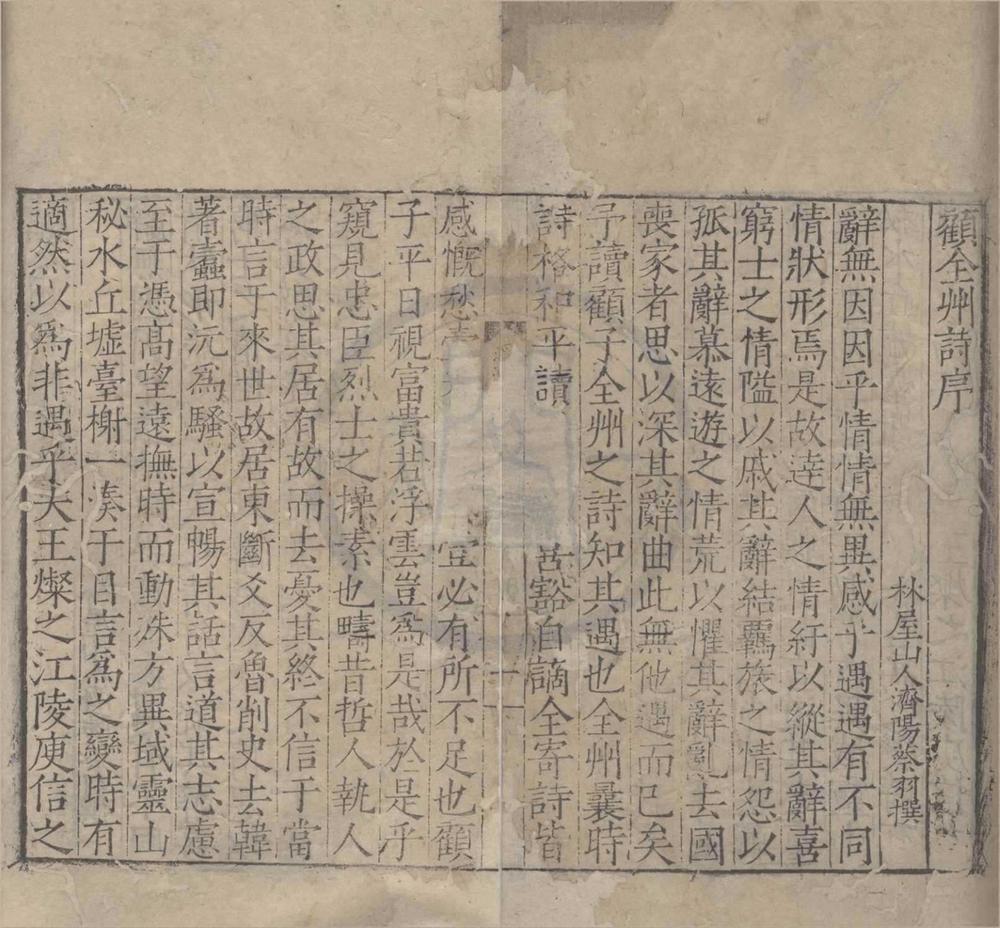 顧全州詩序
林屋山人濟陽蔡羽撰
辭無因因乎情情無異感乎遇遇有不同
情狀形焉是故達人之情紆以縱其辭喜
窮士之情隘以戚其辭結羈旅之情怨以
孤其辭慕遠遊之情荒以懼其辭亂去國
喪家者思以深其辭曲此無他遇而已矣
予讀顧子全州之詩知其遇也全州曩時
詩格和平讀 谿自謫全寄詩皆
感慨愁 宜必有所不足也顧
子平日視富貴若浮雲豈爲是哉於是乎
窺見忠臣烈士之操素也疇昔哲人執人
之政思其居有故而去憂其終不信于當
時言于來世故居東斷爻反魯削史去韓
著蠹即沅爲騷以宣暢其話言道其志慮
至于憑高望遠撫時而動殊方異域靈山
秘水丘墟臺榭一湊于目言爲之變時有
適然以爲非遇乎大王燦之江陵庾信之